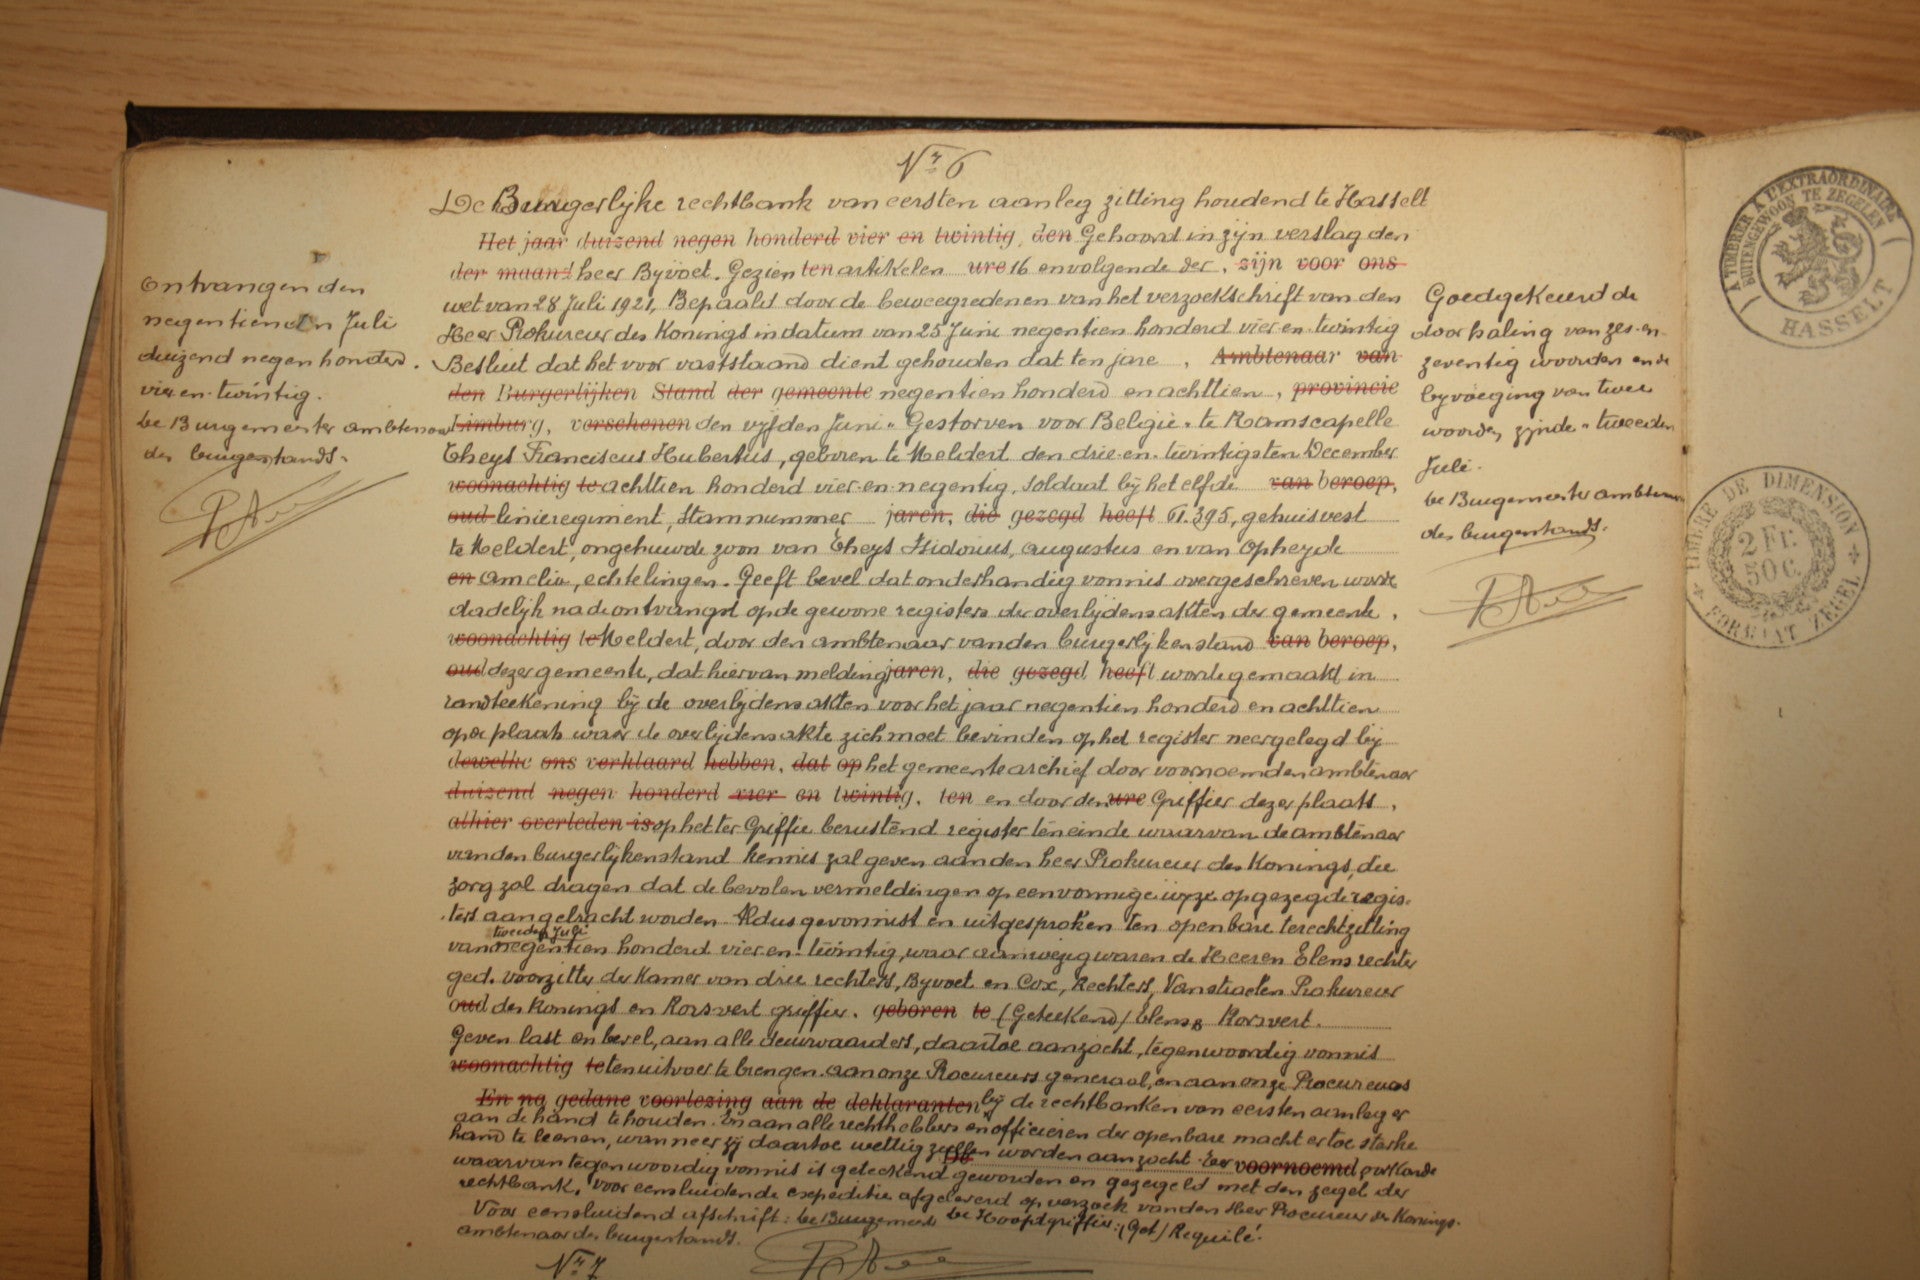 Nr 6
De Burgerlijke rechtbank van eersten aanleg zitting houdend te Hasselt
Het jaar duizend negen honderd vier en twintig, den Gehoord in zijn verslag den
der maand heer Byvoet. Gezien ten artikelen ure 16 en volgende der, zijn voor ons
wet van 28 Juli 1921, Bepaald door de beweegredenen van het verzoekschrift van den
Heer Prokureur des Konings in datum van 25 Juni negentien honderd vier en twintig
Besluit dat het voor vaststaand dient gehouden dat ten jare, Ambtenaar van
den Burgerlijken Stand der gemeente negentien honderd en achttien, provincie
Limburg, verschenen den vijfden Juni "Gestorven voor België" te Ramscapelle
Theys Franciscus Hubertus, geboren te Meldert den drie-en-twintigsten December
woonachtig te achttien honderd vier-en-negentig, soldaat bij het elfde van beroep,
oud linieregiment, stamnummer jaren, die gezegd heeft 61.395, gehuisvest
te Meldert, ongehuwde zoon van Theys Isidorus, augustus en van Opheyde
en Amelia, echtelingen. Geeft bevel dat onderhandig vonnis overgeschreven worde
dadelijk na de ontvangst op de gewone registers der overlijdensakten der gemeente,
woonachtig te Meldert, door den ambtenaar van den burgerlijken stand van beroep,
oud dezer gemeente, dat hiervan melding jaren, die gezegd heeft worde gemaakt in
randteekening bij de overlijdensakten voor het jaar negentien honderd en achttien
op de plaats waar de overlijdensakte zich moet bevinden op het register neergelegd bij
dewelke ons verklaard hebben, dat op het gemeentearchief door voornoemden ambtenaar
duizend negen honderd vier en twintig, ten en door den ure Griffier dezer plaats,
alhier overleden is op het ter Griffie berustend register ten einde waarvan de ambtenaar
van den burgerlijken stand kennis zal geven aan den heer Prokureur des Konings, die
zorg zal dragen dat de bevolen vermeldingen op eenvormige wijze op gezegde regis-
ters aangebracht worden. Aldus gevonnist en uitgesproken ten openbare terechtzitting
tweeden Juli
van negentien honderd vier-en-twintig, waar aanwezig waren de Heeren Elens rechter
ged. voorzitter der Kamer van drie rechters, Byvoet en Cox, Rechters, Vanstraelen Prokureur
oud des Konings en Korsvert griffier. geboren te (Geteekend) Elens Korsvert.
Geven last en bevel, aan alle deurwaarders, daartoe aanzocht, tegenwoordig vonnis
woonachtig te ten uitvoer te brengen. aan onze Procureurs generaal, en aan onze Procureurs
En na gedane voorlezing aan de deklaranten bij de rechtbanken van eersten aanleg er
aan de hand te houden. En aan alle rechthebbers en officieren der openbare macht er toe sterke
hand te leenen, wanneer zij daartoe wettig zullen worden aanzocht. Ter voornoemd, oorkonde
waarvan tegenwoordig vonnis is geteekend geworden en gezegeld met den zegel der
rechtbank. Voor eensluidende expeditie afgeleverd op verzoek van den Heer Procureur des Konings.
Voor eensluidend afschrift: de Burgemeester de Hoofdgriffier: (Get) Requilé.
ambtenaar des burgerstands.
Nr 7
Ontvangen den
negentienden Juli
duizend negen honderd
vier-en-twintig.
de Burgemeester ambtenaar
des burgerstands.
Goedgekeurd de
doorhaling van zes-en-
zeventig woorden en de
bijvoeging van twee
woorden zijnde "tweeden
Juli.
de Burgemeester ambtenaar
des burgerstands.
A TIMBRER A L'EXTRAORDINAIRE
BUITENGEWOON TE ZEGELEN
HASSELT
TIMBRE DE DIMENSION
2 FR.
50 C.
FORMAAT ZEGEL